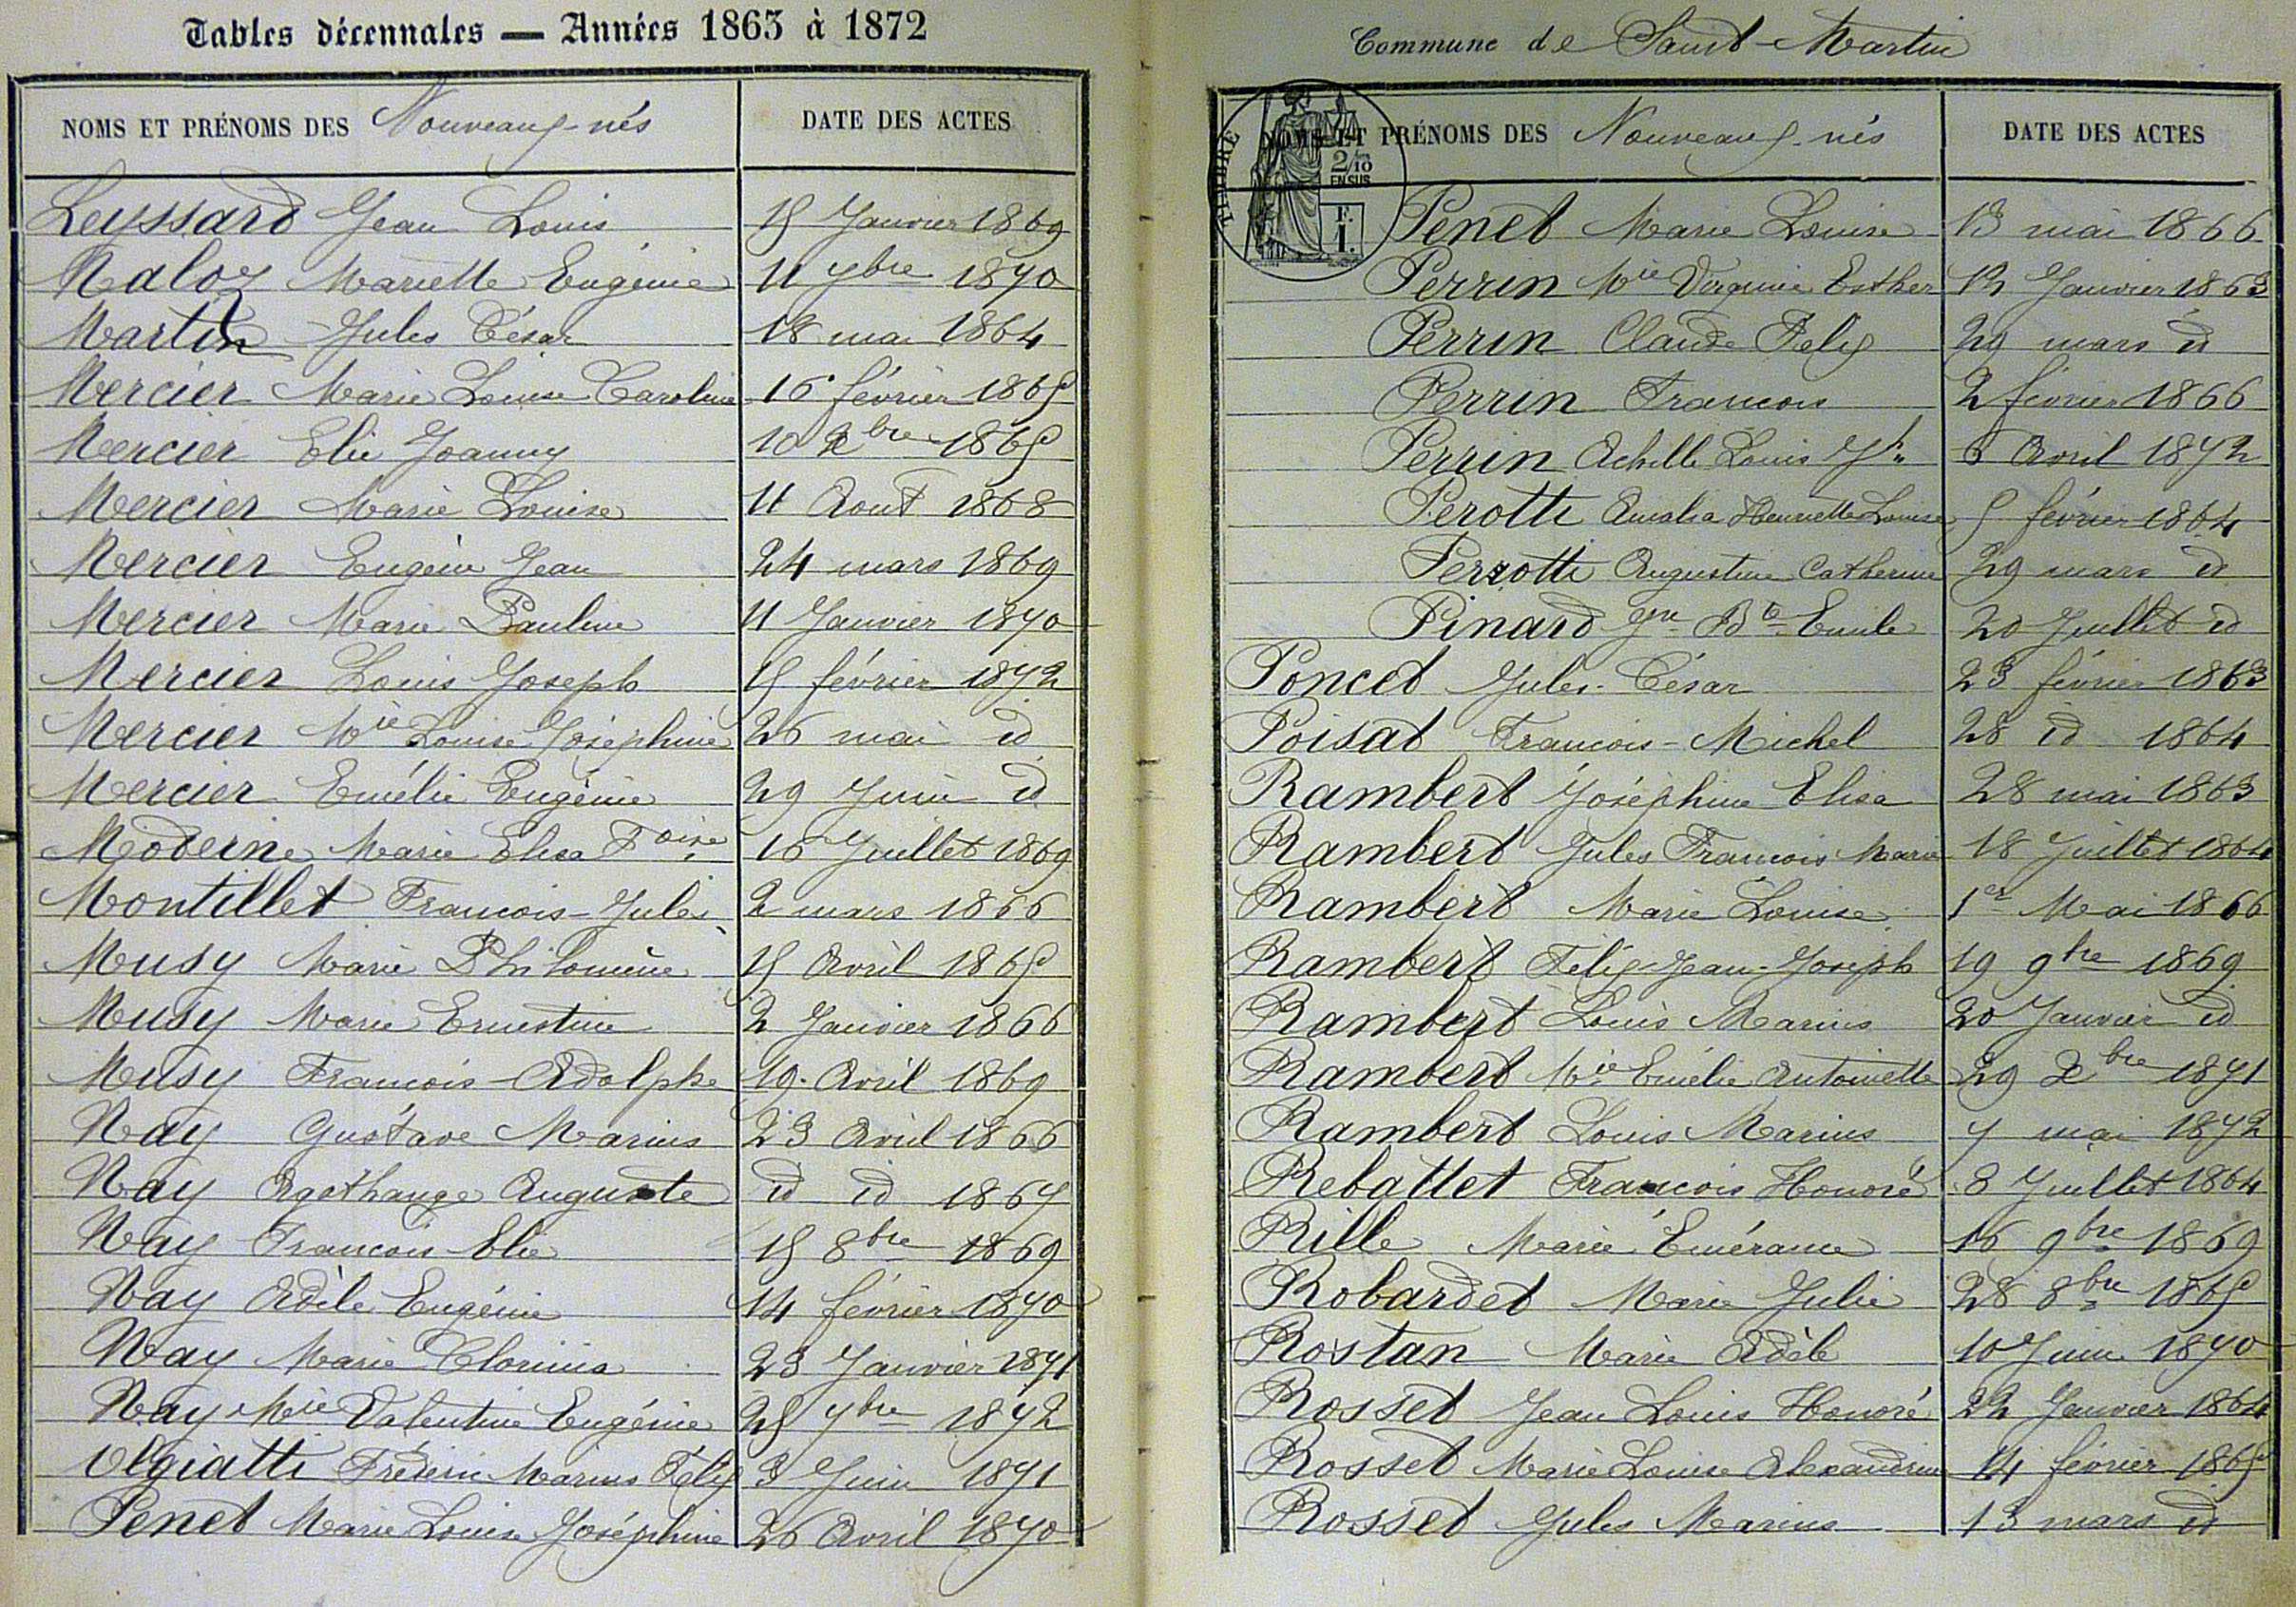 Tables décennales — Années 1863 à 1872
NOMS ET PRÉNOMS DES Nouveaux-nés DATE DES ACTES
Leyssard Jean Louis 15 Janvier 1869
Maloz Mariette Eugénie 11 7bre 1870
Martin Jules César 18 mai 1864
Mercier Marie Louise Caroline 16 février 1865
Mercier Elie Joanny 10 Xbre 1865
Mercier Marie Louise 11 Aout 1868
Mercier Eugénie Jean 24 mars 1869
Mercier Marie Pauline 11 Janvier 1870
Mercier Louis Joseph 15 février 1872
Mercier Mie Louise Joséphine 26 mai id
Mercier Emélie Eugénie 29 Juin id
Moderne Marie Elisa Foise 16 Juillet 1869
Montillet François-Jules 2 mars 1866
Musy Marie Philomène 15 Avril 1865
Musy Marie Ernestine 2 Janvier 1866
Musy François-Adolphe 19 Avril 1869
Nay Gustave Marius 23 Avril 1866
Nay Agathange Auguste id id 1867
Nay François Elie 15 8bre 1869
Nay Adèle Eugénie 14 février 1870
Nay Marie Clorinia 23 Janvier 1871
Nay Mie Valentine Eugénie 25 7bre 1872
Olgiatti Fréderic Marius Félix 3 Juin 1871
Penet Marie Louise Joséphine 26 Avril 1870
Commune de Saint-Martin
NOMS ET PRÉNOMS DES Nouveaux-nés DATE DES ACTES
TIMBRE
2/10
EN SUS
F.
1.
Penet Marie Louise 13 mai 1866
Perrin Mie Virginie Esther 12 Janvier 1863
Perrin Claude Felix 29 mars id
Perrin François 2 février 1866
Perrin Achille Louis Jh 6 Avril 1872
Perotti Amalia Henriette Louise 5 février 1864
Perrotti Augustine Catherine 29 mars id
Pinard Jn Bte Emile 20 Juillet id
Poncet Jules-César 23 février 1863
Poisat François-Michel 28 id 1864
Rambert Joséphine Elisa 28 mai 1863
Rambert Jules François Marie 18 Juillet 1864
Rambert Marie Louise 1er Mai 1866
Rambert Félix-Jean-Joseph 19 9bre 1869
Rambert Louis Marius 20 Janvier id
Rambert Mie Emélie Antoinette 29 Xbre 1871
Rambert Louis Marius 7 mai 1872
Rebattet François Honoré 8 Juillet 1864
Rille Marie Emérance 16 9bre 1869
Robardet Marie Julie 28 8bre 1865
Rostan Marie Adèle 10 Juin 1870
Rosset Jean Louis Honoré 22 Janvier 1864
Rosset Marie Louise Alexandrine 14 février 1865
Rosset Jules Marius 13 mars id